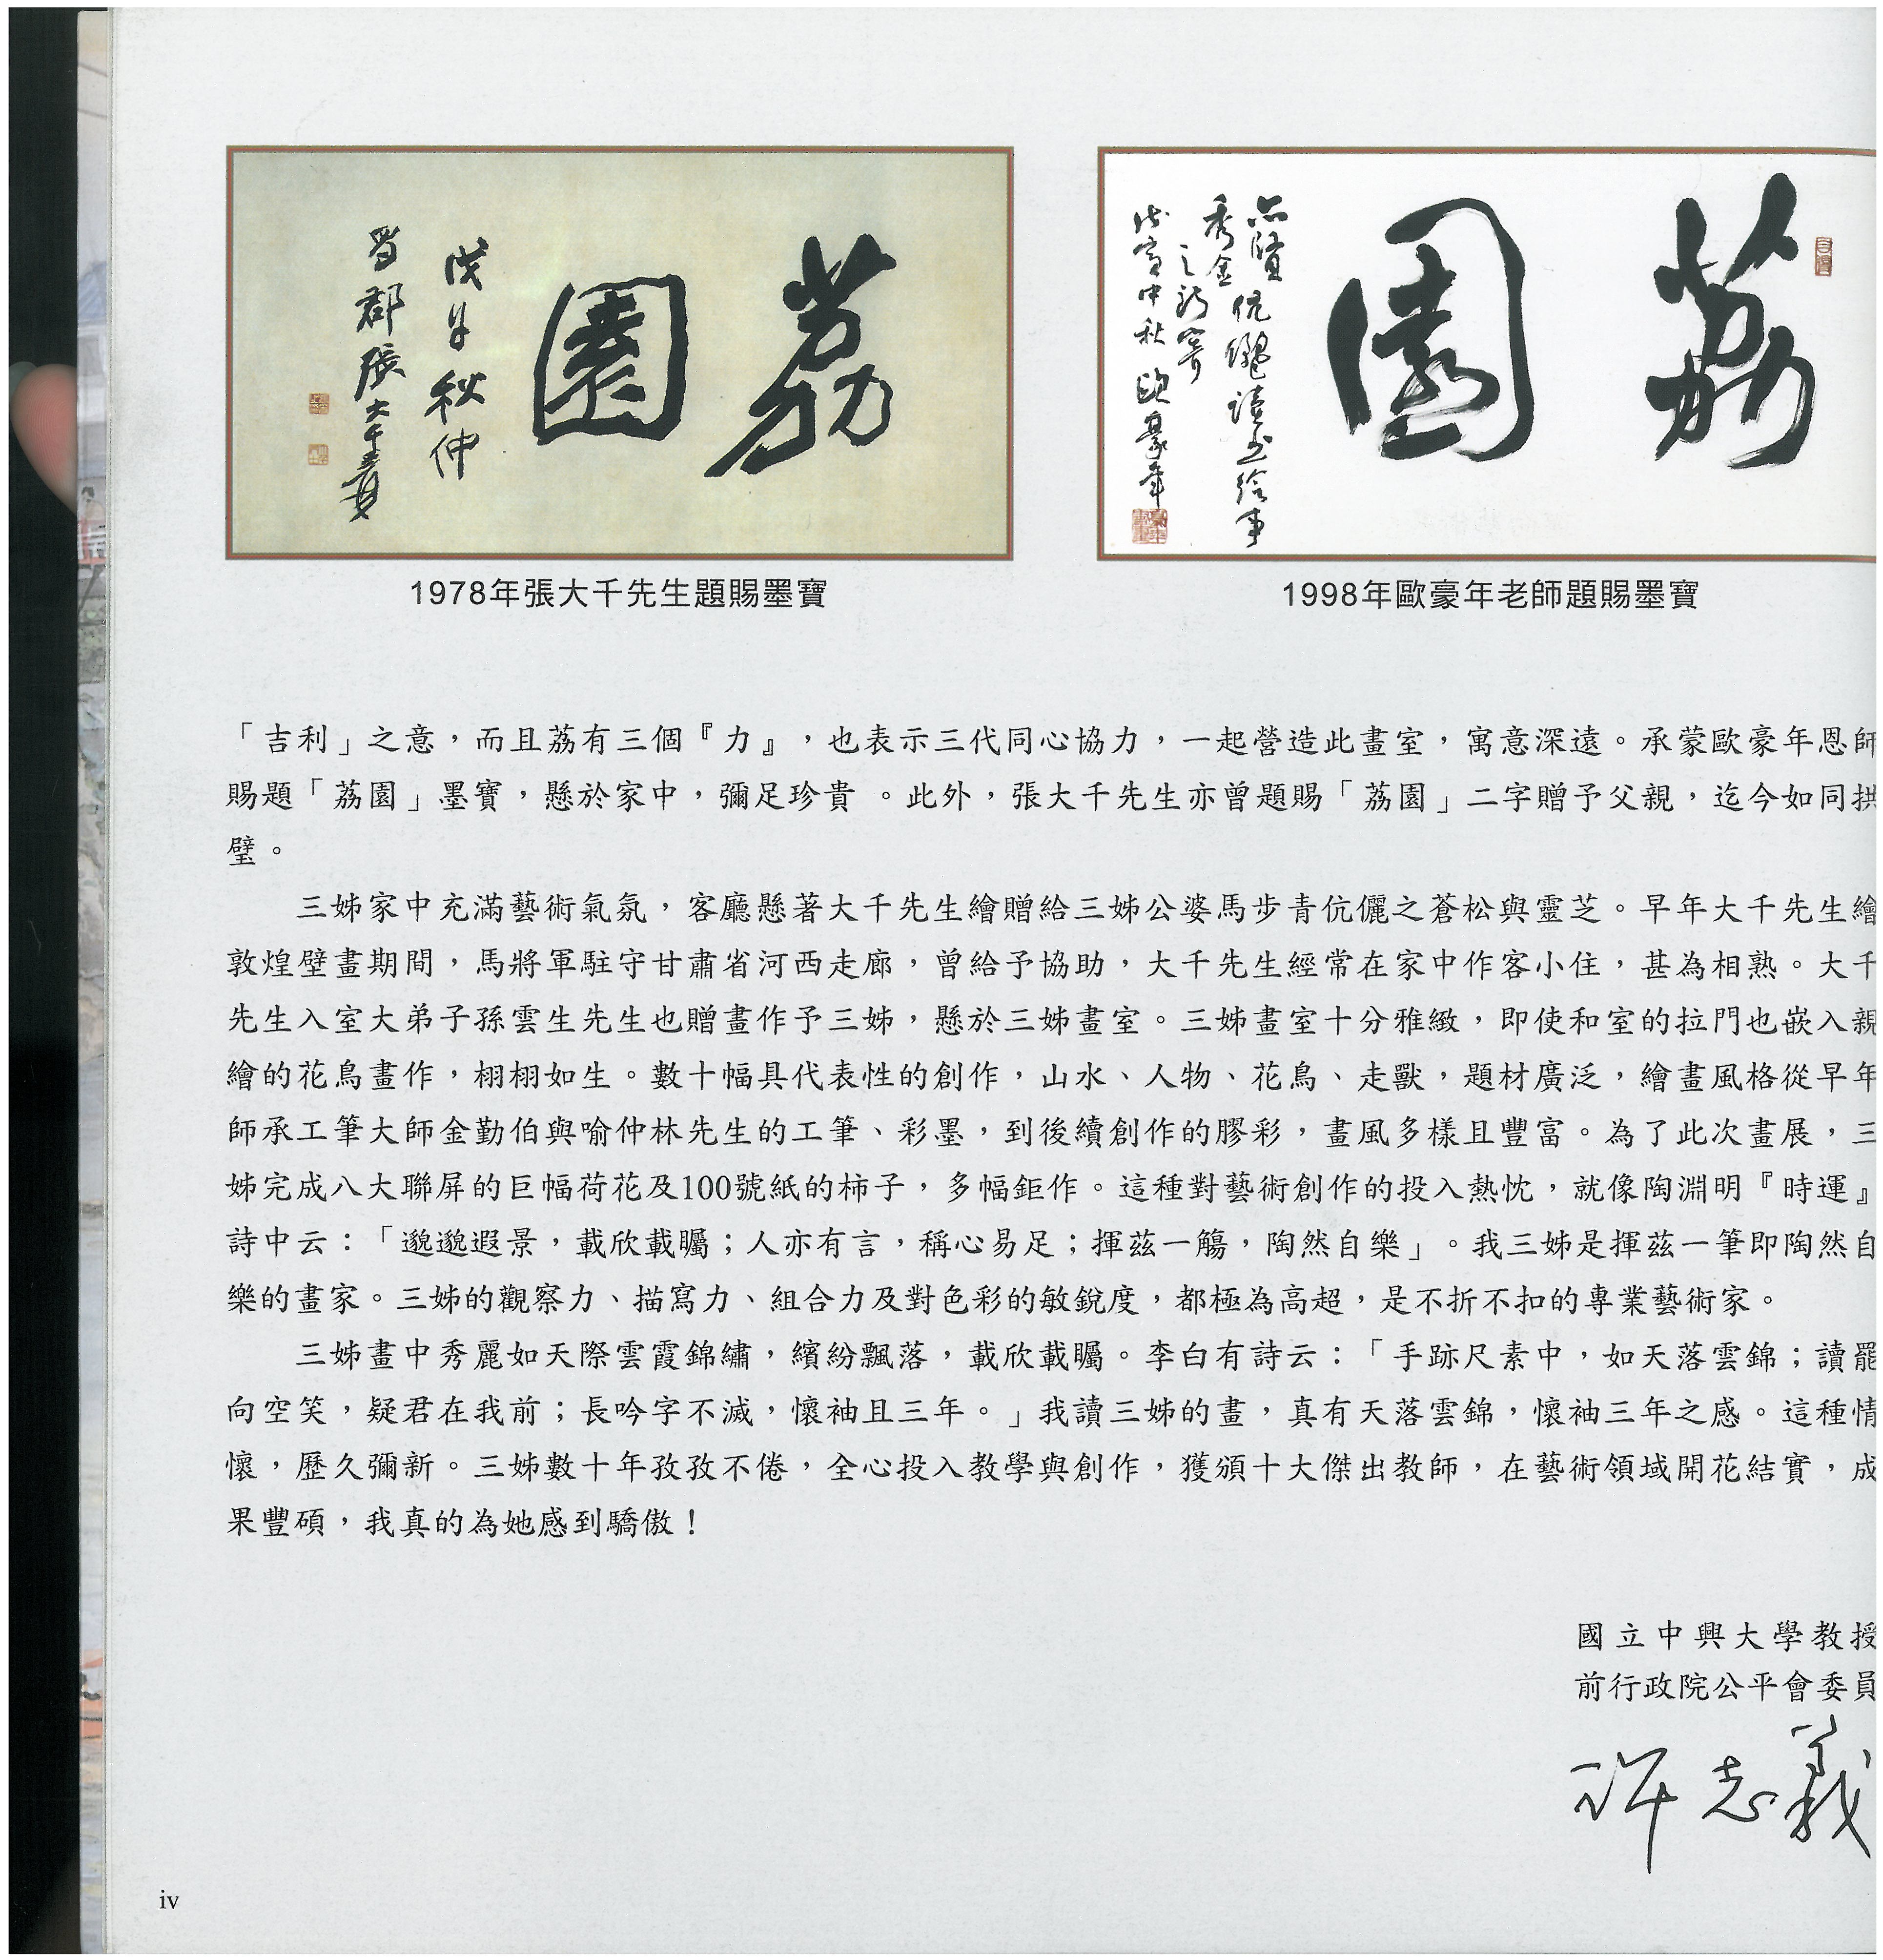 荔園
戊午秋仲
蜀郡張大千爰
荔園
秀金伉儷讀書繪事
之謝寶
戊寅中秋 歐豪年
1978年張大千先生題賜墨寶
1998年歐豪年老師題賜墨寶
「吉利」之意，而且荔有三個『力』，也表示三代同心協力，一起營造此畫室，寓意深遠。承蒙歐豪年恩師
賜題「荔園」墨寶，懸於家中，彌足珍貴 。此外，張大千先生亦曾題賜「荔園」二字贈予父親，迄今如同拱
璧。
三姊家中充滿藝術氣氛，客廳懸著大千先生繪贈給三姊公婆馬步青伉儷之蒼松與靈芝。早年大千先生繪
敦煌壁畫期間，馬將軍駐守甘肅省河西走廊，曾給予協助，大千先生經常在家中作客小住，甚為相熟。大千
先生入室大弟子孫雲生先生也贈畫作予三姊，懸於三姊畫室。三姊畫室十分雅緻，即使和室的拉門也嵌入親
繪的花鳥畫作，栩栩如生。數十幅具代表性的創作，山水、人物、花鳥、走獸，題材廣泛，繪畫風格從早年
師承工筆大師金勤伯與喻仲林先生的工筆、彩墨，到後續創作的膠彩，畫風多樣且豐富。為了此次畫展，三
姊完成八大聯屏的巨幅荷花及100號紙的柿子，多幅鉅作。這種對藝術創作的投入熱忱，就像陶淵明『時運』
詩中云：「邈邈遐景，載欣載矚；人亦有言，稱心易足；揮茲一觴，陶然自樂」。我三姊是揮茲一筆即陶然自
樂的畫家。三姊的觀察力、描寫力、組合力及對色彩的敏銳度，都極為高超，是不折不扣的專業藝術家。
三姊畫中秀麗如天際雲霞錦繡，繽紛飄落，載欣載矚。李白有詩云：「手跡尺素中，如天落雲錦；讀罷
向空笑，疑君在我前；長吟字不滅，懷袖且三年。」我讀三姊的畫，真有天落雲錦，懷袖三年之感。這種情
懷，歷久彌新。三姊數十年孜孜不倦，全心投入教學與創作，獲頒十大傑出教師，在藝術領域開花結實，成
果豐碩，我真的為她感到驕傲！
國立中興大學教授
前行政院公平會委員
許志義
iv